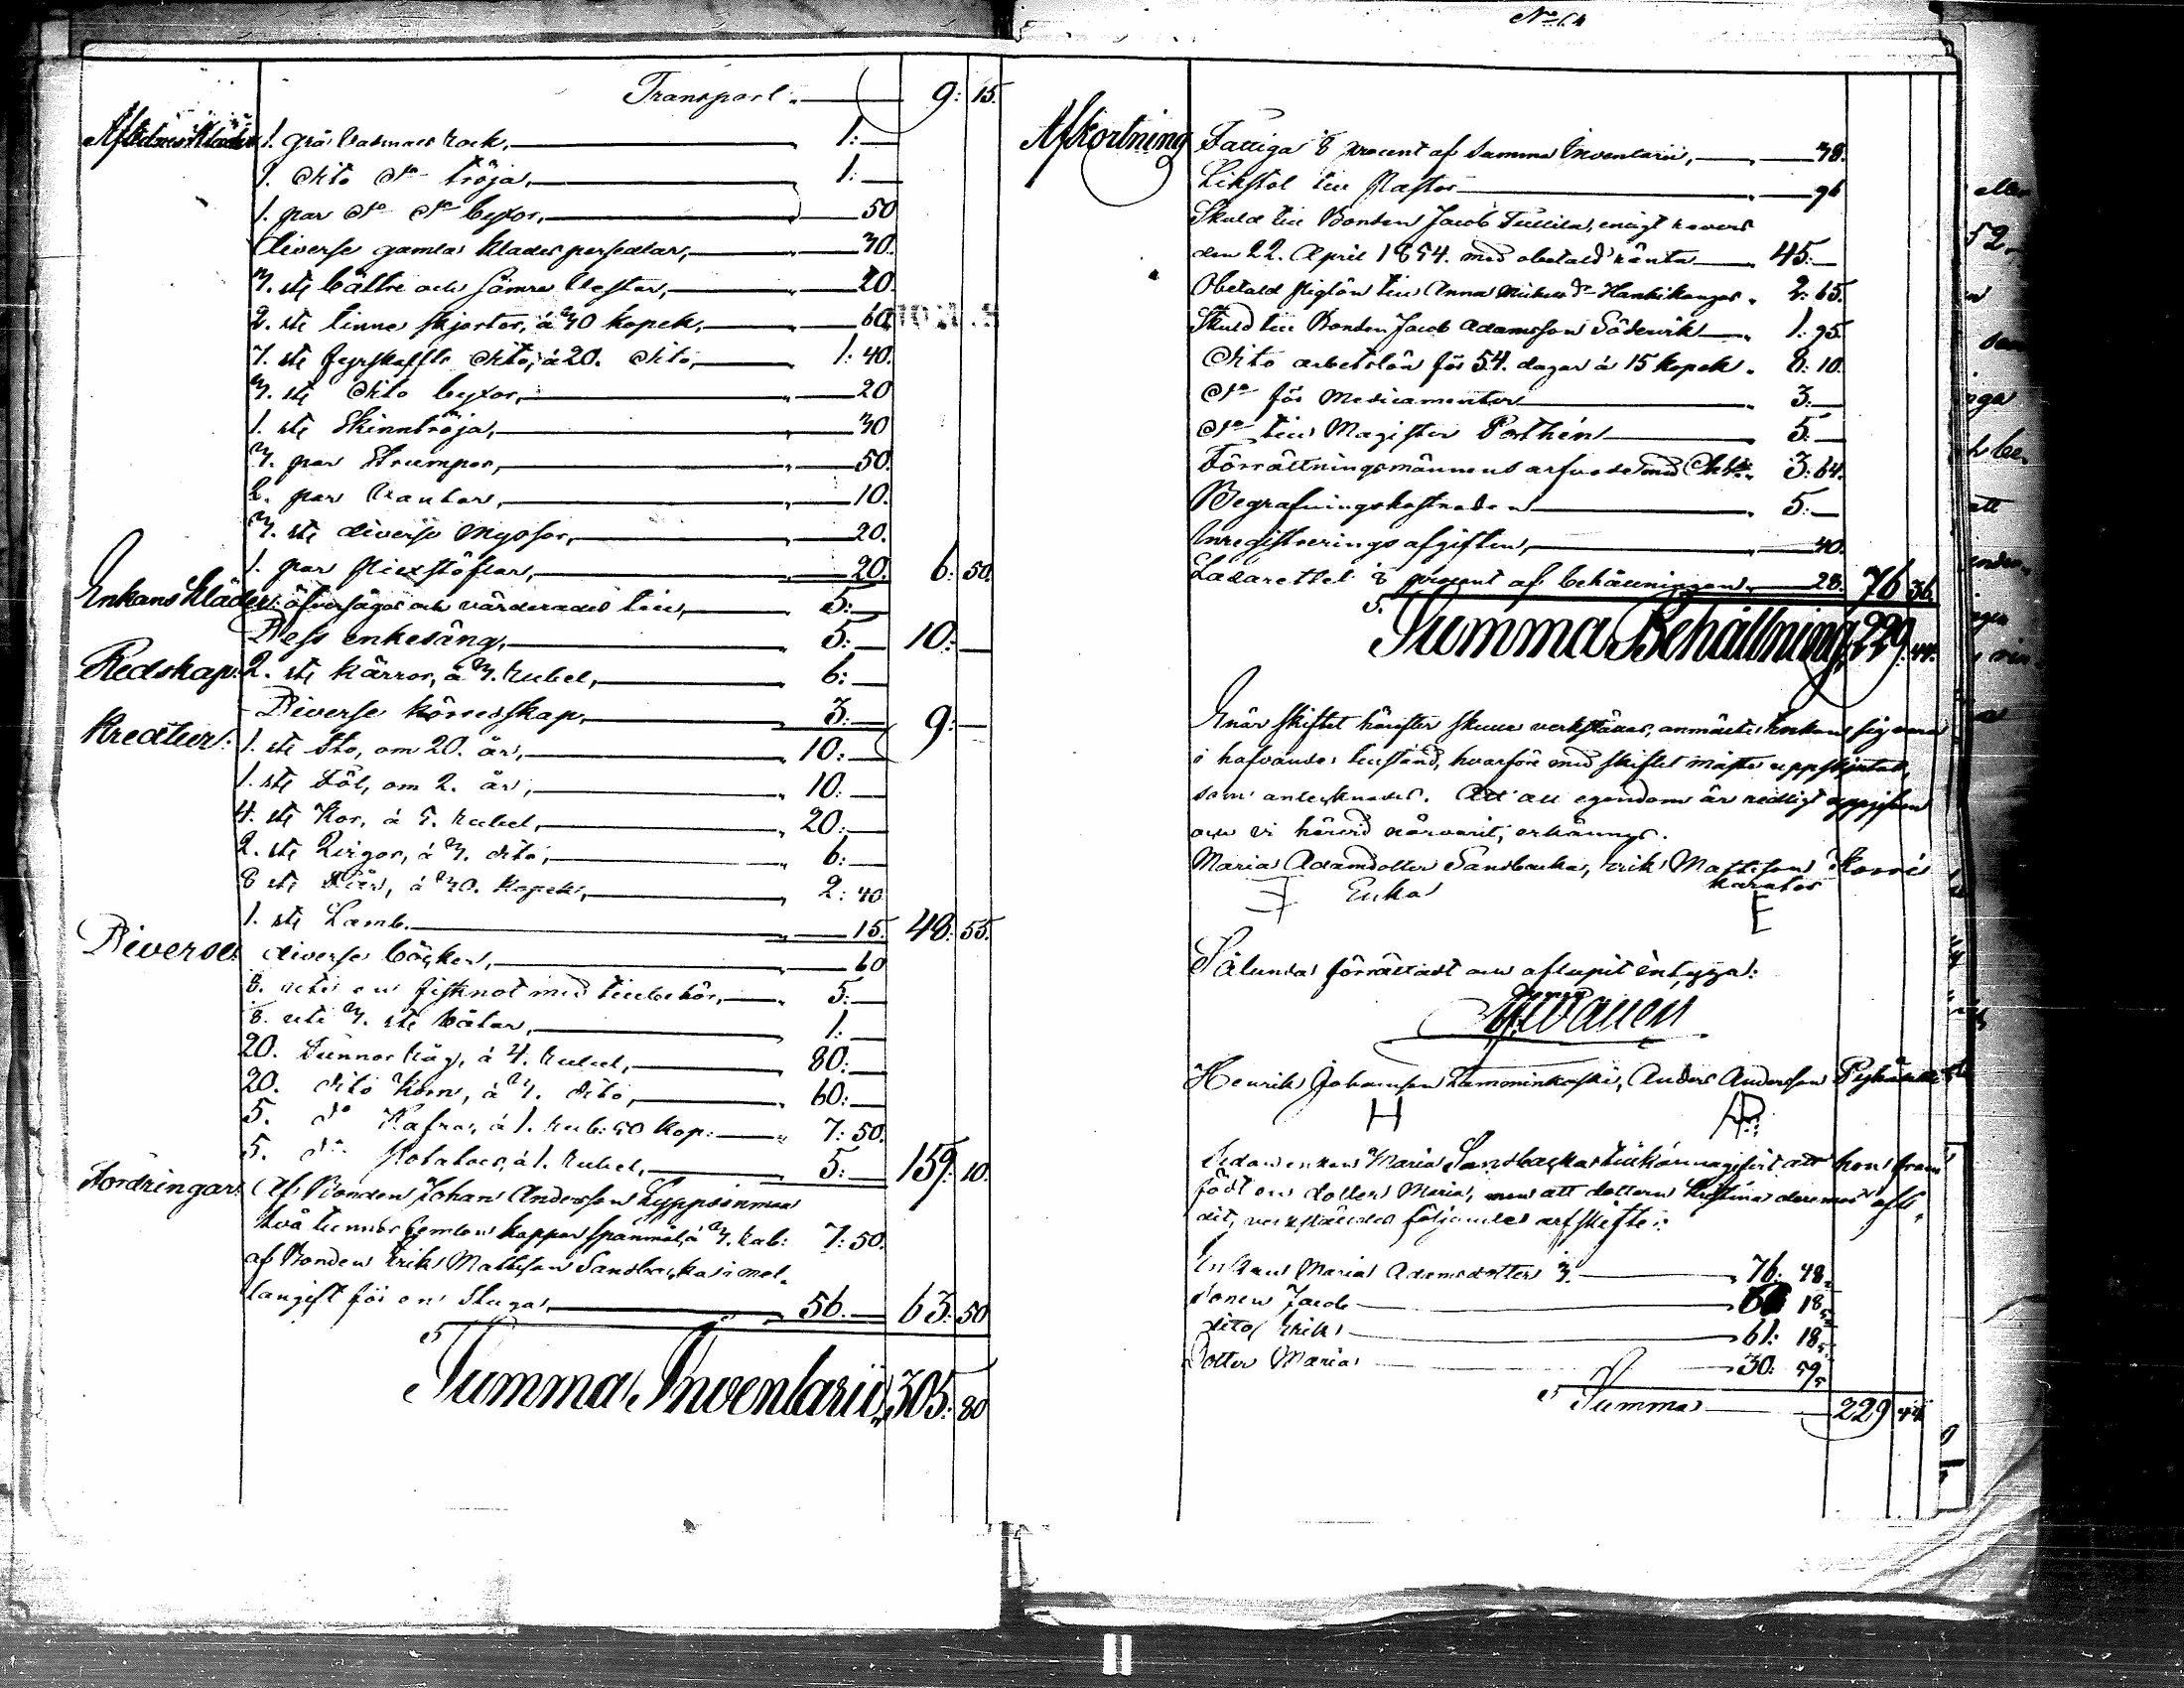 Transport 9: 15.
Aflednes Kläder 1. grå Vadmals rock, 1:
1. dito do tröja, 1:
1. par do do byxor, 50
diverse gamla klädes persedlar, 30.
3. st bättre och sämre Vestar, 20.
2. st linne skjortor, à 30 kopek, 60.
7. st dito, à 20. dito, 1: 40.
3. st dito byxor, 20
1. st Skinntröja, 30
3. par Strumpor, 50.
2. par Vantar, 10.
3. st diverse Myssor, 20.
1. par 20. 6: 50.
Enkans Kläder: öfversågos och värderades till, 5:
Dess enkesäng, 5: 10:
Redskap: 2. st kärror, à 3. rubel, 6:
Diverse köresskap, 3: 9:
Kreatur: 1. st Sto, om 20. år, 10:
1. st Föl, om 2. år, 10:
4. st Kor, à 5. rubel, 20:
2. st Qvigor, à 3. dito, 6:
8 st Får, à 30. kopek, 2: 40
1. st Lamb. 15. 48: 55.
Diverse diverse böcker, 60
uti en fisknot med tillbehör, 5:
uti 3. st båtar, 1:
20. Tunnor Råg, à 4. rubel, 80:
20. dito Korn, à 3. dito, 60:
5. do Hafra, à 1. rub: 50 kop: 7: 50.
5. do Potatoes, à 1. rubel, 5: 159: 10.
Fordringar: Af Bonden Johan Andersson Lyppsinmaa
två tunnor femton kappar spanmål, à 3. rub: 7: 50.
af Bonden Erik Mattsson Sandbacka i mel-
langift för en Stuga, 56. 63: 50
Summa Inventarii, 305: 80
No 64
Afkortning Fattiga procent af Summa Inventarii, 38.
Likstol till Pastor 96
Skuld till Bonden Jacob, enligt revers
den 22. April 1854. med obetald ränta 45:
Obetald piglön till Anna 2: 65.
Skuld till Bonden Jacob Adamsson Södervik 1: 95.
Dito arbetslön för 54. dagar à 15 kopek. 8: 10.
do för Medicamenter 3:
do till Magister Porthén 5:
Förrättningsmännens arfvode med 3: 64.
Begrafningskostnaden 5:
Inregistrerings afgiften, 40.
Lazarettet procent af behållningen 28. 76 36.
Summa Behållning, 229. 44.
Enär skiftet härefter skulle verkställas, anmälte Enkan sig vara
i hafvande tillstånd, hvarföre med skiftet måste uppskjutas,
som antecknades. Att all egendom är redligt uppgifven
och vi härvid närvarit, erkännes.
Maria Adamsdotter Sandbacka, Erik Mattsson
Enka
Sålunda förrättadt och aflupit intyga:
Henrik Johansson Lamminkoski, Anders Andersson
H AP.
Sedan enkan Maria Sandbacka tillkännagifvit att hon fram
födt en dotter Maria, men att dottren Kristina deremot afli-
dit, verkställdes följande arfskifte:
Enkans Maria Adamsdotters 76: 48.
Sonen Jacob 61 18.
dito Erik 61: 18.
Dotter Maria 30: 59.
Summa 229 44